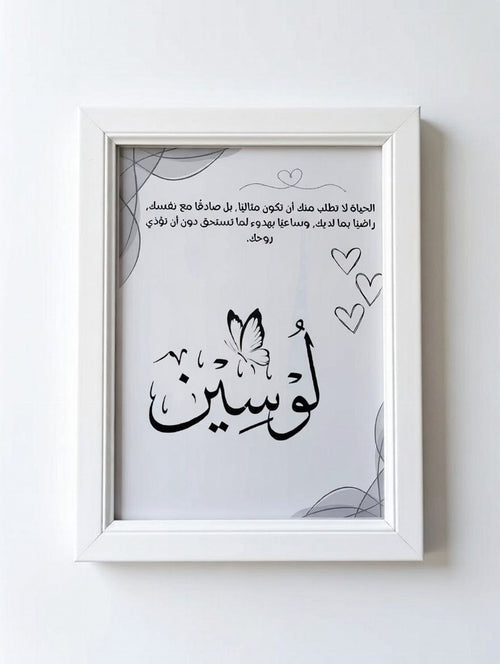 الحياة لا تطلب منك أن تكون مثاليًا، بل صادقًا مع نفسك،
راضيًا بما لديك، وساعيًا بهدوء لما تستحق دون أن تؤذي
روحك.
لُوسِين